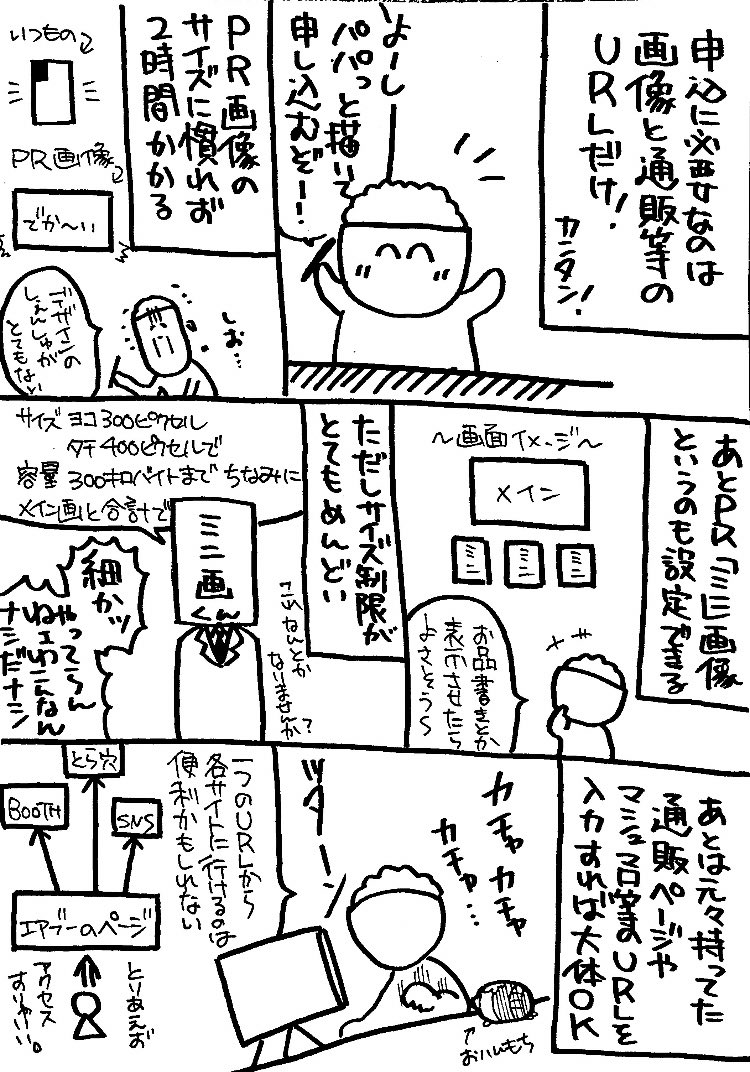 申込に必要なのは
画像と通販等の
URLだけ!
カンタン!
よーし
パパっと描いて
申し込むぞー!
PR画像の
サイズに慣れず
2時間かかる
いつもの
PR画像
でか〜い
しお…
デザインの
しぇんしゅが
とてもない
あとPR「ミニ」画像
というのも設定できる
〜画面イメージ〜
メイン
ミニ
ミニ
ミニ
お品書きとか
表示させたら
よさそう〜
ただしサイズ制限が
とてもめんどい
サイズ ヨコ300ピクセル
タテ400ピクセルで
容量 300キロバイトまで ちなみに
メイン画と合計で
ミニ画くん
細かッ
やってらん
ねェわこんなん
ナシだナシ
こんなんとか
なりませんか?
あとは元々持ってた
通販ページや
マシュマロ等のURLを
入力すれば大体OK
カチャカチャ
カチャ…
ッターン
おいもち
一つのURLから
各サイトに行けるのは
便利かもしれない
とら穴
BOOTH
SNS
エアブーのページ
とりあえず
アクセス
すりゃいい。